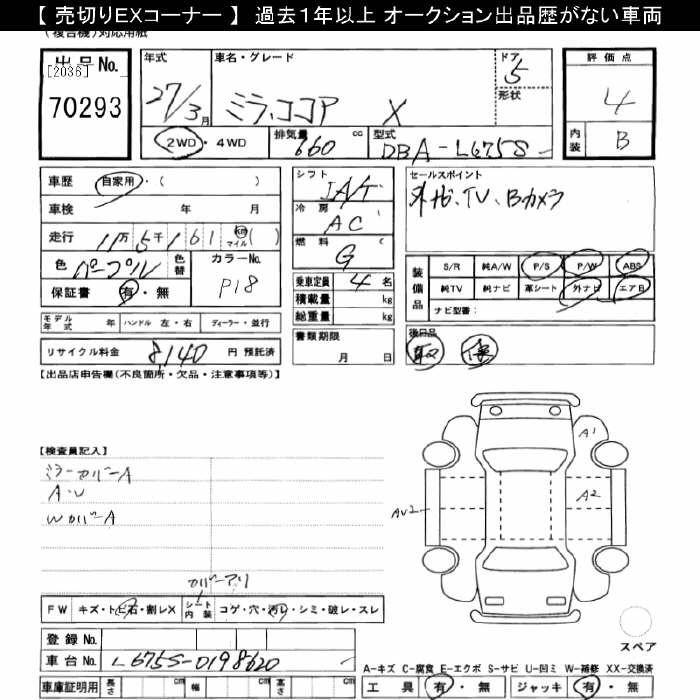 【 売切りEXコーナー 】 過去1年以上 オークション出品歴がない車両
(複合機)対応用紙
出品No.
[2036]
70293
年式
27/3月
車名・グレード
ミラ,ココア X
ドア
5
形状
評価点
4
内装
B
2WD・4WD
排気量
660 cc
型式
DBA-L675S
車歴 自家用・( )
車検 年 月
走行 11万5千161 km マイル ( )
色 パープル
色替
カラーNo.
P18
保証書 有・無
シフト
IAT
冷房
AC
燃料
G
乗車定員 4名
積載量 kg
総重量 kg
セールスポイント
外ナビ、TV、Bカメラ
装備品
S/R 純A/W P/S P/W ABS
純TV 純ナビ 革シート 外ナビ エアB
ナビ型番:
モデル年式 年 ハンドル 左・右 ディーラー・並行
書類期限
月 日
後日品
取 保
リサイクル料金 8,140 円 預託済
【出品店申告欄(不良箇所・欠品・注意事項等)】
【検査員記入】
ミラーカバーA
A・U
WカバーA
カバーアリ
A1
A2
AU2
FW キズ・トビ石・割レX シート内装 コゲ・穴・汚レ・シミ・破レ・スレ
登録No.
車台No. L675S-0198620
スペア
A-キズ C-腐食 E-エクボ S-サビ U-凹ミ W-補修 XX-交換済
車庫証明用 長さ cm 幅 cm 高さ cm
工具 有・無 ジャッキ 有・無